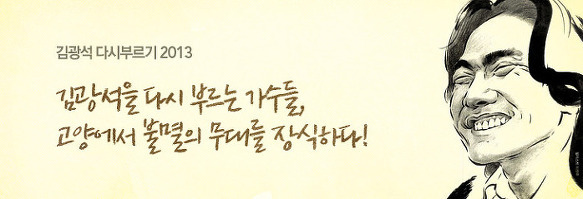 김광석 다시부르기 2013
김광석을 다시 부르는 가수들,
고양에서 불멸의 무대를 장식하다!